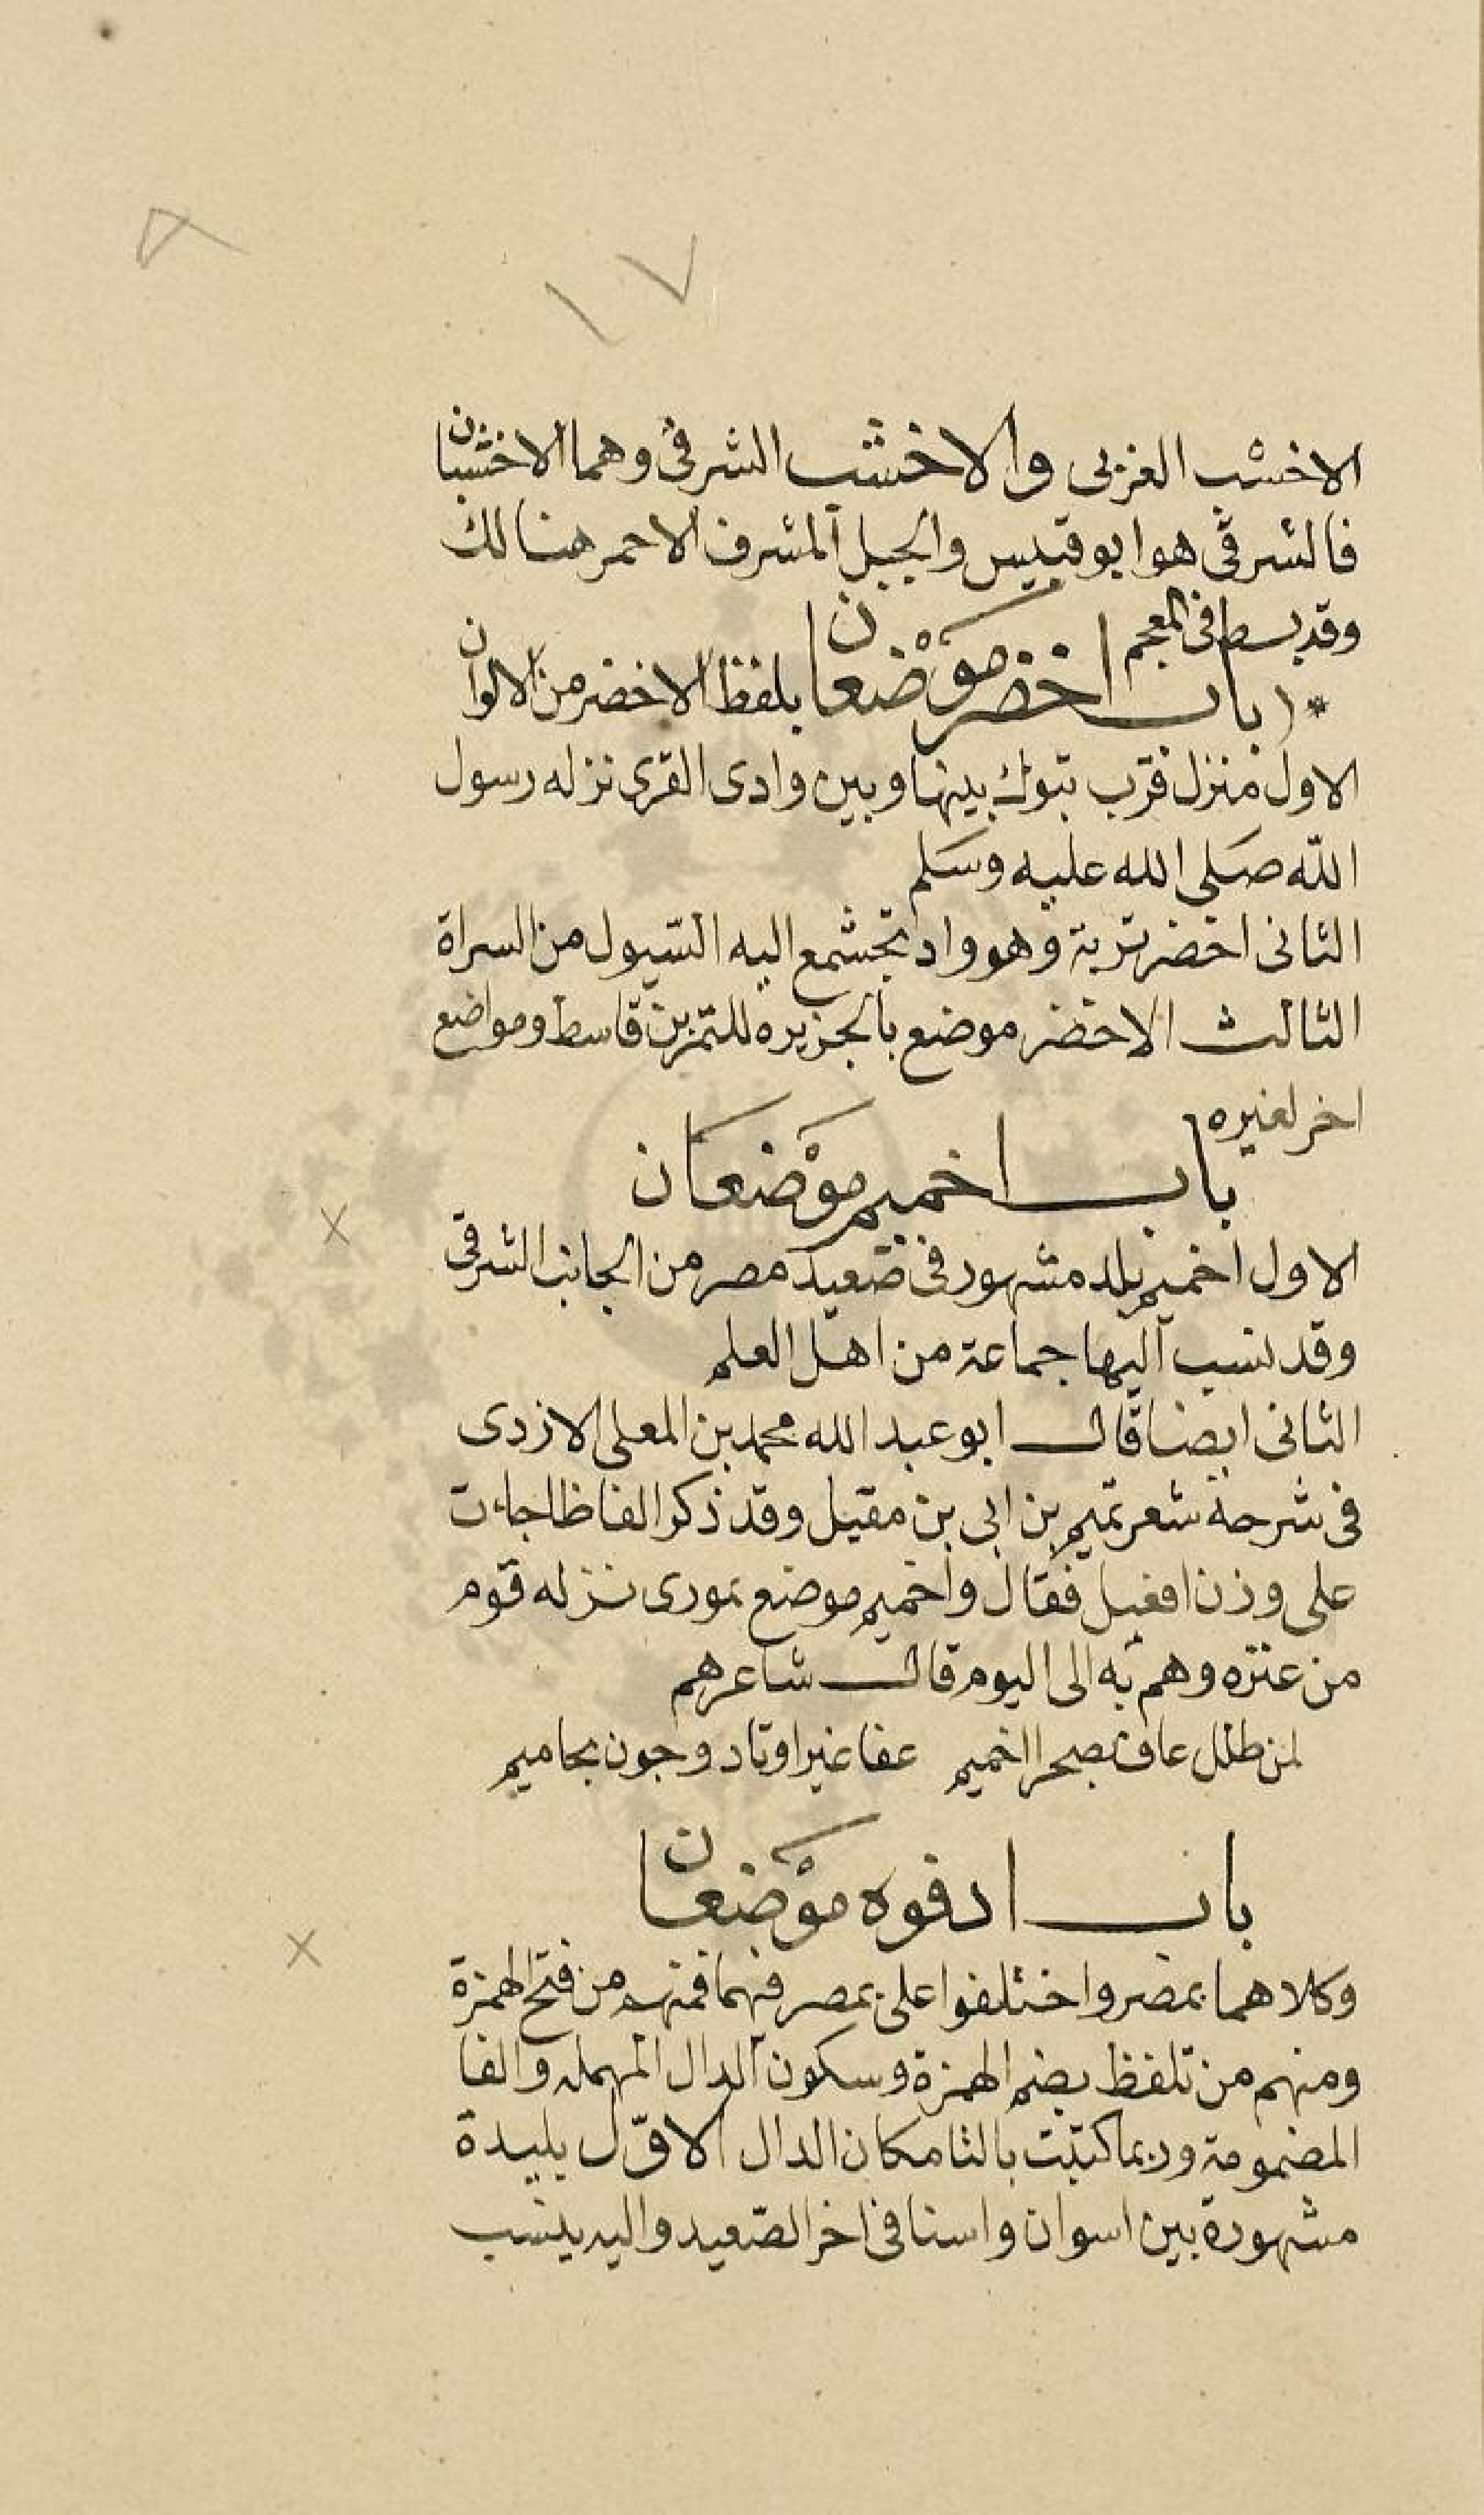 ١٧
الاخشب الغربى والاخشب الشرقى وهما الاخشبان
فالشرقى هو ابو قبيس والجبل المشرف الاحمر هنالك
وقد بسط فى المعجم
باب اخضر موضعان بلفظ الاخضر من الالوان
الاول منزل قرب تبوك بينها وبين وادى القرى نزله رسول
الله صلى الله عليه وسلم
الثانى اخضر تربة وهو واد تجتمع اليه السيول من السراة
الثالث الاخضر موضع بالجزيره للنمر بن قاسط ومواضع
اخر لغيره
باب اخميم موضعان
الاول اخميم بلد مشهور فى صعيد مصر من الجانب الشرقى
وقد نسب اليها جماعة من اهل العلم
الثانى ايضا قال ابو عبد الله محمد بن المعلى الازدى
فى شرحة شعر تميم بن ابى بن مقيل وقد ذكر الفاظا جاءت
على وزن افعيل فقال واخميم موضع بورى نزله قوم
من عنزه وهم به الى اليوم قال شاعرهم
لمن طلل عاف بصحرا اخميم عفا غير اوتاد وجون يحاميم
باب ادفوه موضعان
وكلاهما بمصر واختلفوا على بمصر فيهما فمنهم من فتح الهمزة
ومنهم من تلفظ بضم الهمزة وسكون الدال المهمله والفا
المضمومة وربما كتبت بالتا مكان الدال الاول بليدة
مشهورة بين اسوان واسنا فى اخر الصعيد واليه ينسب